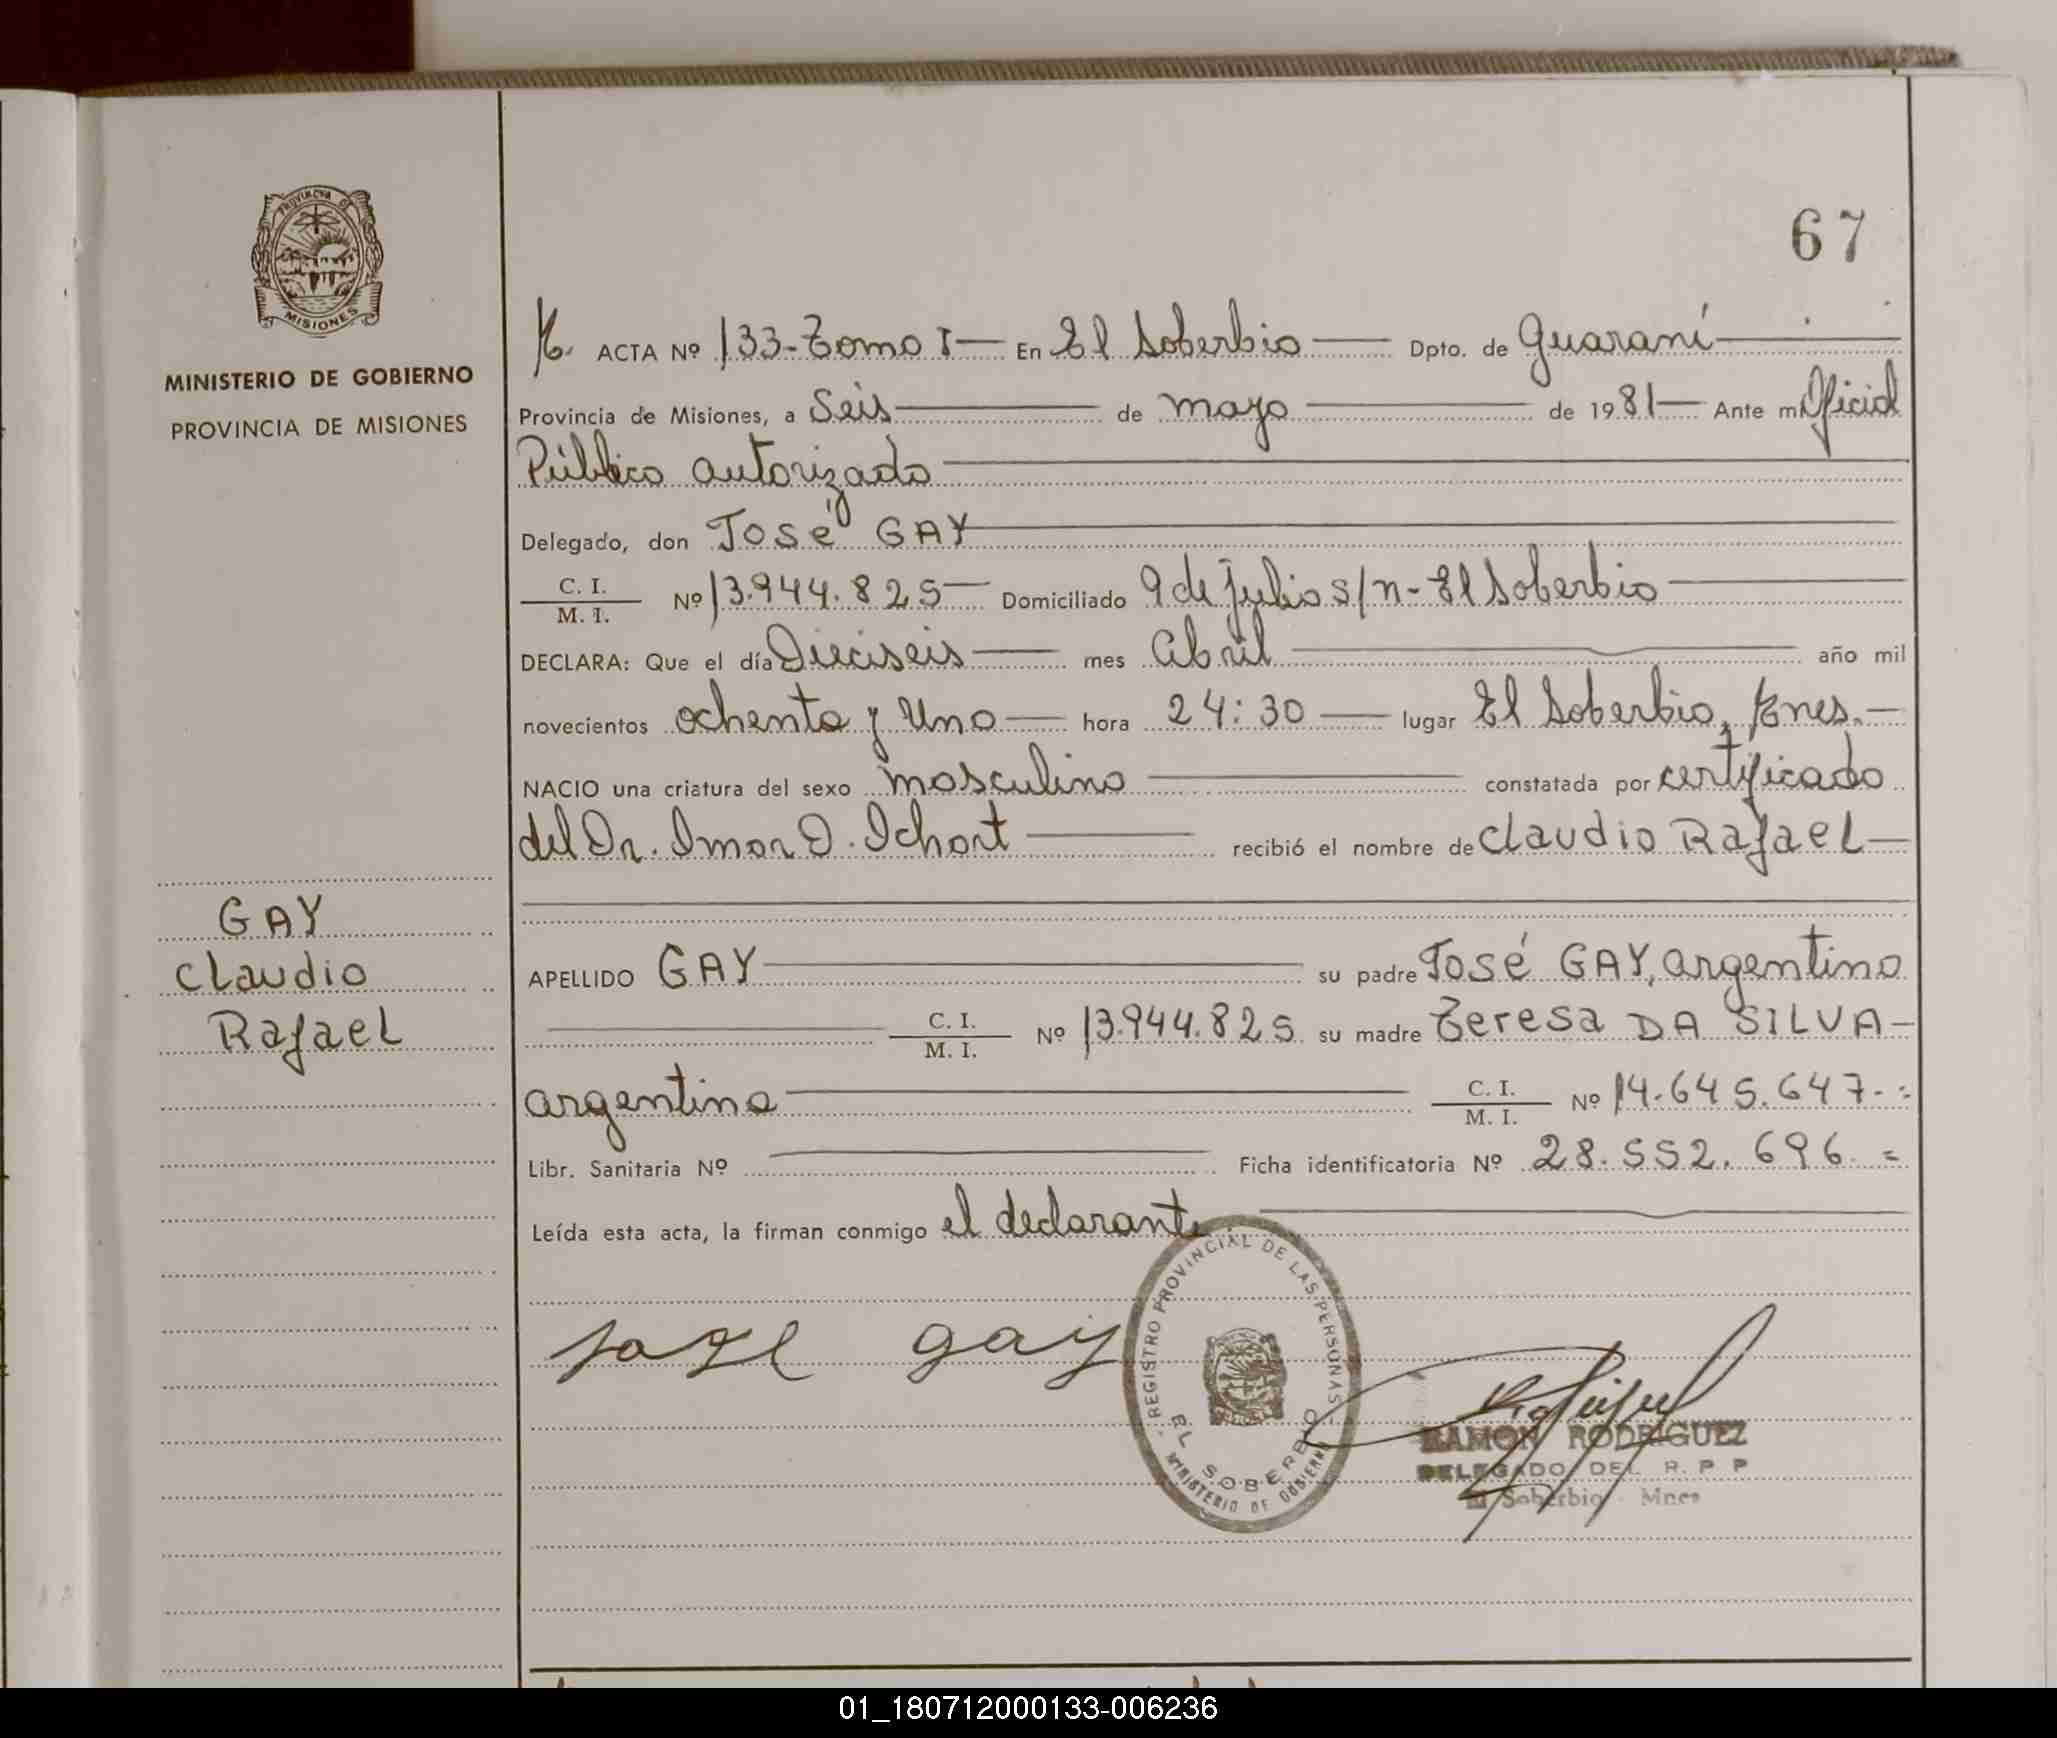 67
PROVINCIA DE
MISIONES
MINISTERIO DE GOBIERNO
PROVINCIA DE MISIONES
ACTA Nº 133-Tomo I En El Soberbio Dpto. de Guaraní
Provincia de Misiones, a Seis de mayo de 1981 Ante mi Oficial
Público autorizado
Delegado, don José GAY
C. I.
M. I. Nº 13.944.825 Domiciliado 9 de julio s/n - El Soberbio
DECLARA: Que el día Dieciseis mes Abril año mil
novecientos ochenta y Uno hora 24:30 lugar El Soberbio, Mnes.
NACIO una criatura del sexo masculino constatada por certificado
del Dr. Imar O. Ichart recibió el nombre de Claudio Rafael
GAY
Claudio
Rafael
APELLIDO GAY su padre José GAY, argentino
C. I.
M. I. Nº 13.944.825 su madre Teresa DA SILVA-
argentina C. I.
M. I. Nº 14.645.647.=
Libr. Sanitaria Nº Ficha identificatoria Nº 28.552.696.=
Leída esta acta, la firman conmigo el declarante
jose gay
REGISTRO PROVINCIAL DE LAS PERSONAS
EL SOBERBIO
MINISTERIO DE GOBIERNO
RAMON RODRIGUEZ
DELEGADO DEL R. P. P
El Soberbio - Mnes
01_180712000133-006236